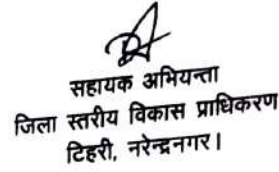 सहायक अभियन्ता
जिला स्तरीय विकास प्राधिकरण
टिहरी, नरेन्द्रनगर।